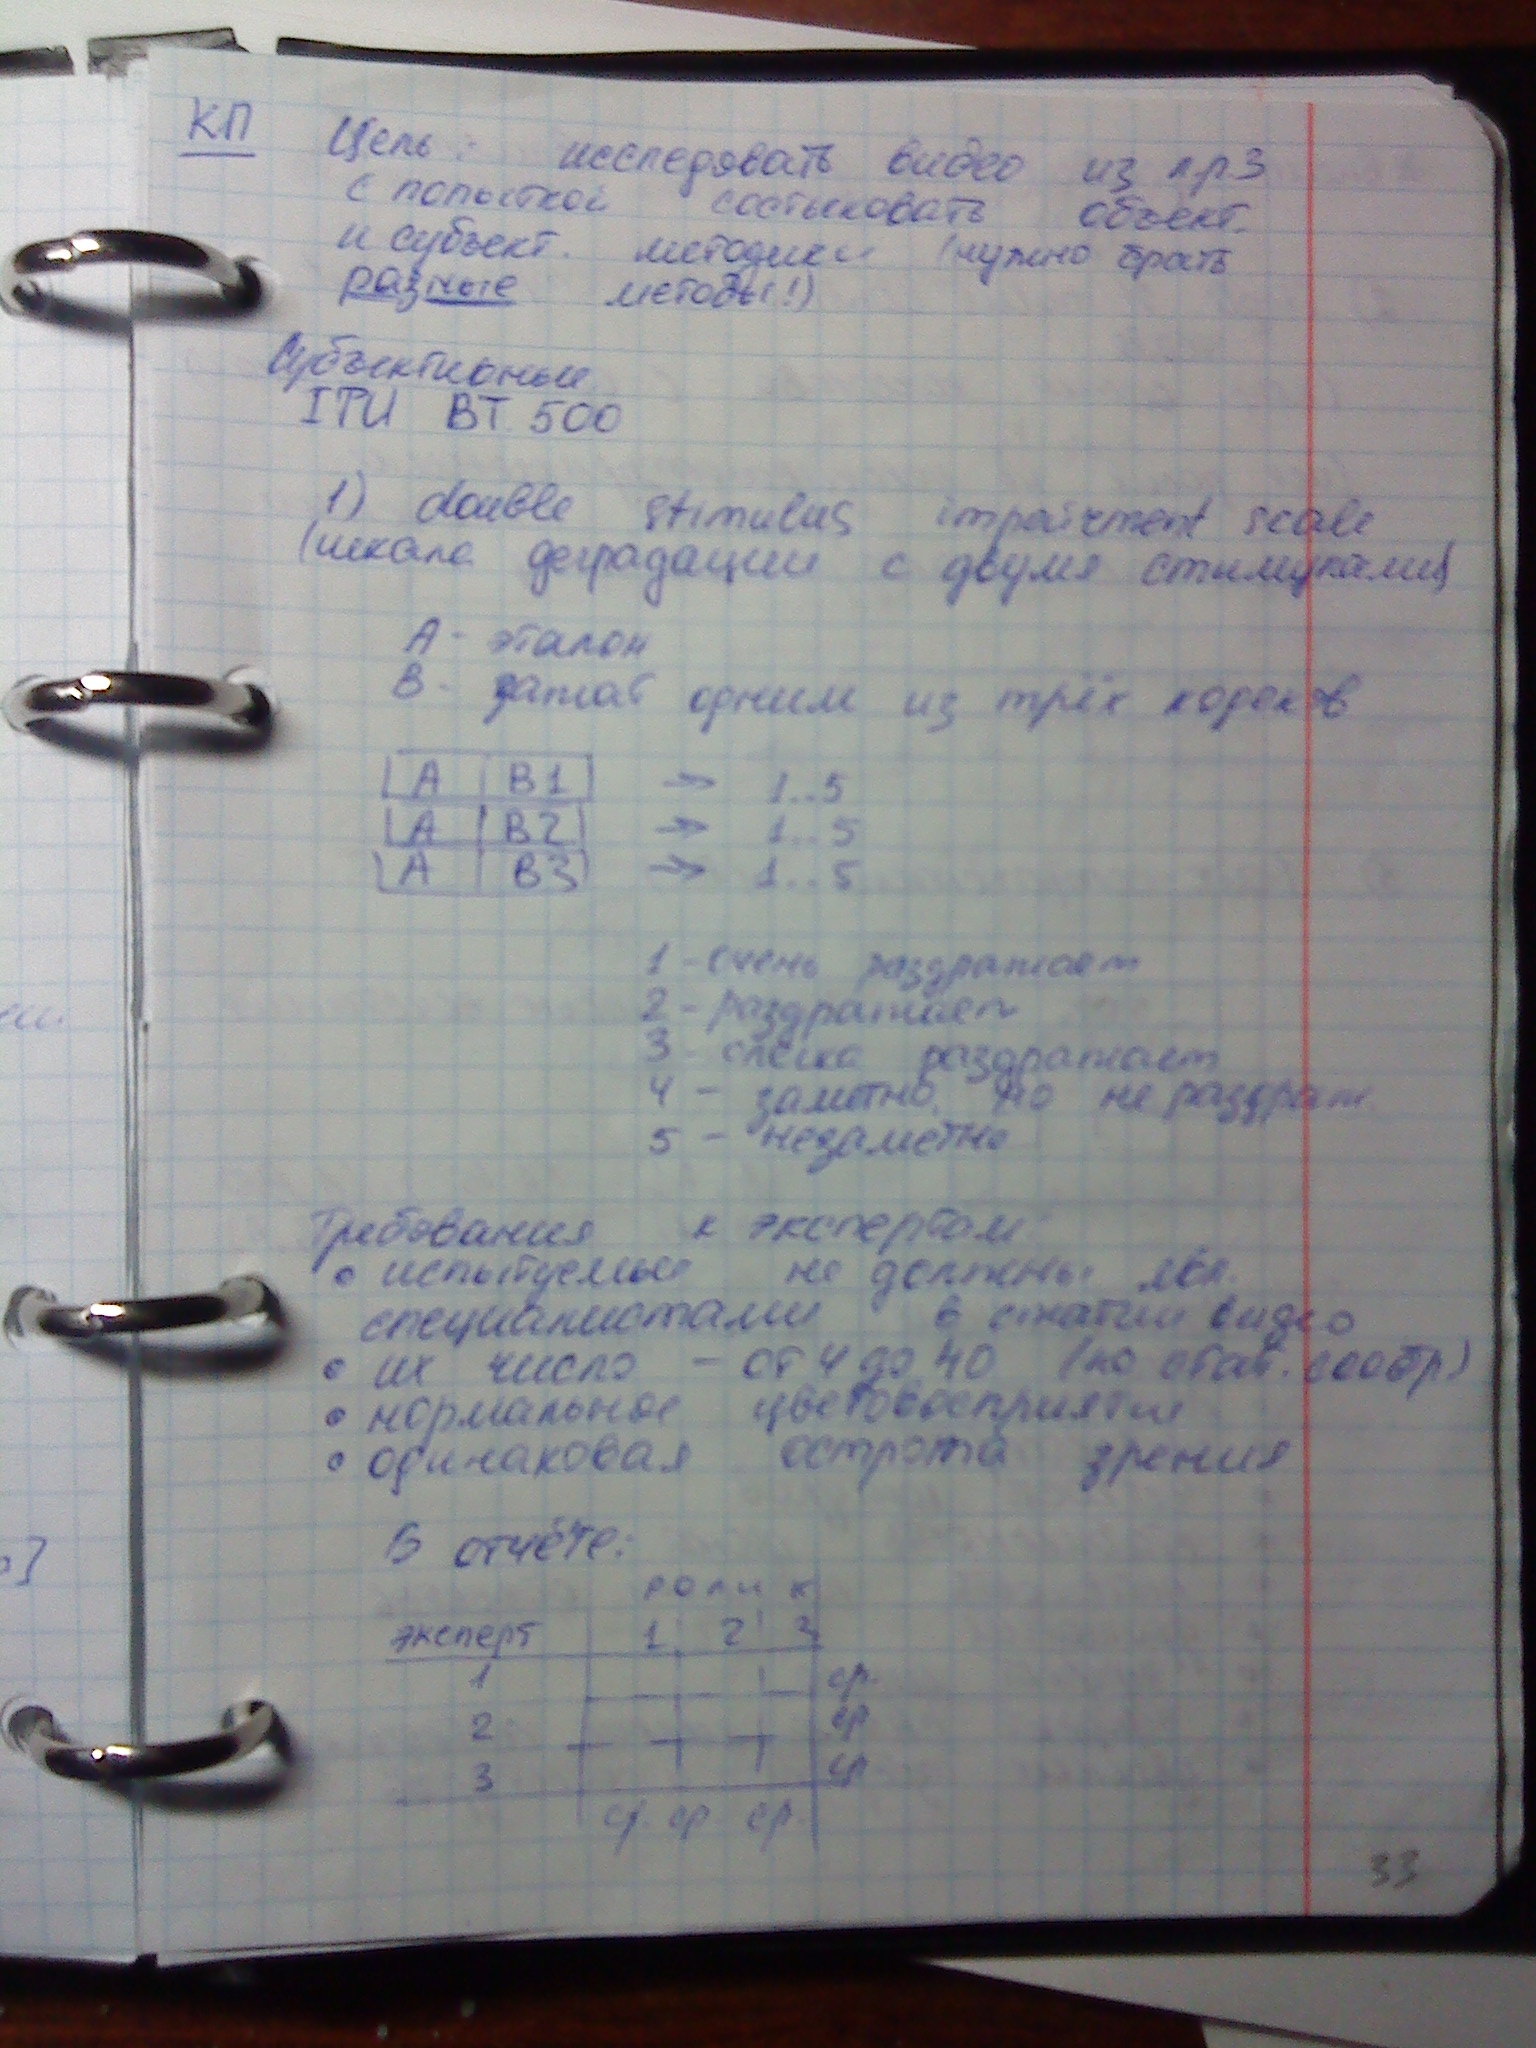 КП
Цель: исследовать видео из л.р.3
с попыткой состыковать объект.
и субъект. методики (нужно брать
разные методы!)
Субъективные
ITU BT 500
1) double stimulus impairment scale
(шкала деградации с двумя стимулами)
А - эталон
В - сжат одним из трёх кодеков
А В1 → 1..5
А В2 → 1..5
А В3 → 1..5
1 - очень раздражает
2 - раздражает
3 - слегка раздражает
4 - заметно, но не раздраж.
5 - незаметно
Требования к экспертам:
• испытуемые не должны явл.
специалистами в сжатии видео
• их число - от 4 до 40 (по стат. сообр.)
• нормальное цветовосприятие
• одинаковая острота зрения
В отчёте:
ролик
эксперт 1 2 3
1 ср.
2 ср
3 ср
ср. ср ср.
33